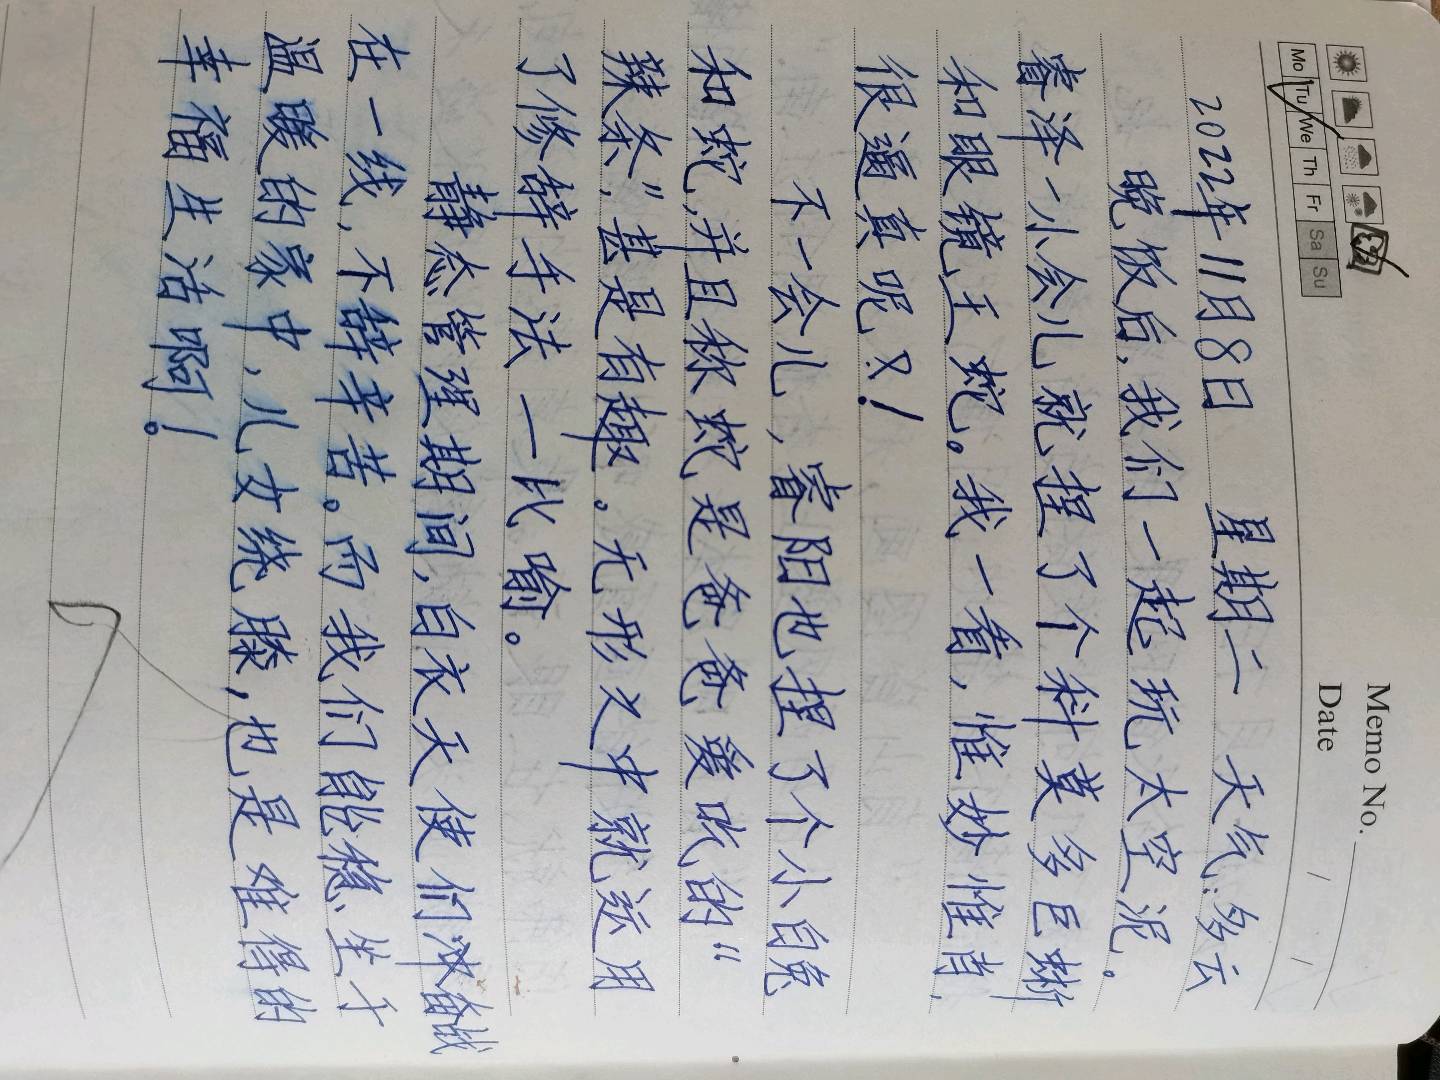 Memo No.
Mo Tu We Th Fr Sa Su
Date / /
2022年11月8日 星期二 天气:多云
晚饭后,我们一起玩太空泥。
睿泽一小会儿就捏了个科莫多巨蜥
和眼镜王蛇。我一看,惟妙惟肖,
很逼真呢!
不一会儿,睿阳也捏了个小白兔
和蛇,并且称蛇是爸爸爱吃的“
辣条”,甚是有趣。无形之中就运用
了修辞手法一比喻。
静态管理期间,白衣天使们奋战
在一线,不辞辛苦。而我们能稳坐于
温暖的家中,儿女绕膝,也是难得的
幸福生活啊!